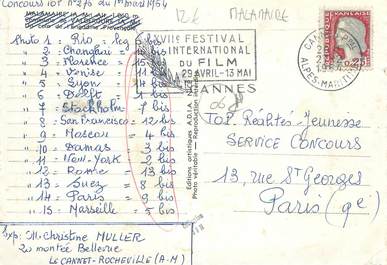 Concours TOP N° 276 du 1er mai 1964
MALAMAIRE
Photo 1 - Rio = 
" 2 -
" 3 - Florence = 15 bis
" 4 - Venise = 11 bis
" 5 - Dijon = 14 bis
" 6 - Delft = 1 bis
" 7 - Stockholm = 7 bis
" 8 - San Francisco = 12 bis
" 9 - Moscou = 4 bis
" 10 - Damas = 3 bis
" 11 - New-York = 2 bis
" 12 - Rome = 13 bis
" 13 - Suez = 8 bis
" 14 - Paris = 9 bis
" 15 - Marseille = 5 bis
Exp: M. Christine MULLER
20 montée Bellevue
LE CANNET-ROCHEVILLE (A-M)
XVIIe FESTIVAL
INTERNATIONAL
DU FILM
29 AVRIL-13 MAI
CANNES
REPUBLIQUE FRANÇAISE
0,25
ALPES-MARITIMES
Editions artistiques A.D.I.A.
Photo véritable - Reproduction
TOP. Réalités Jeunesse
SERVICE CONCOURS
13, rue St Georges
Paris (9e)